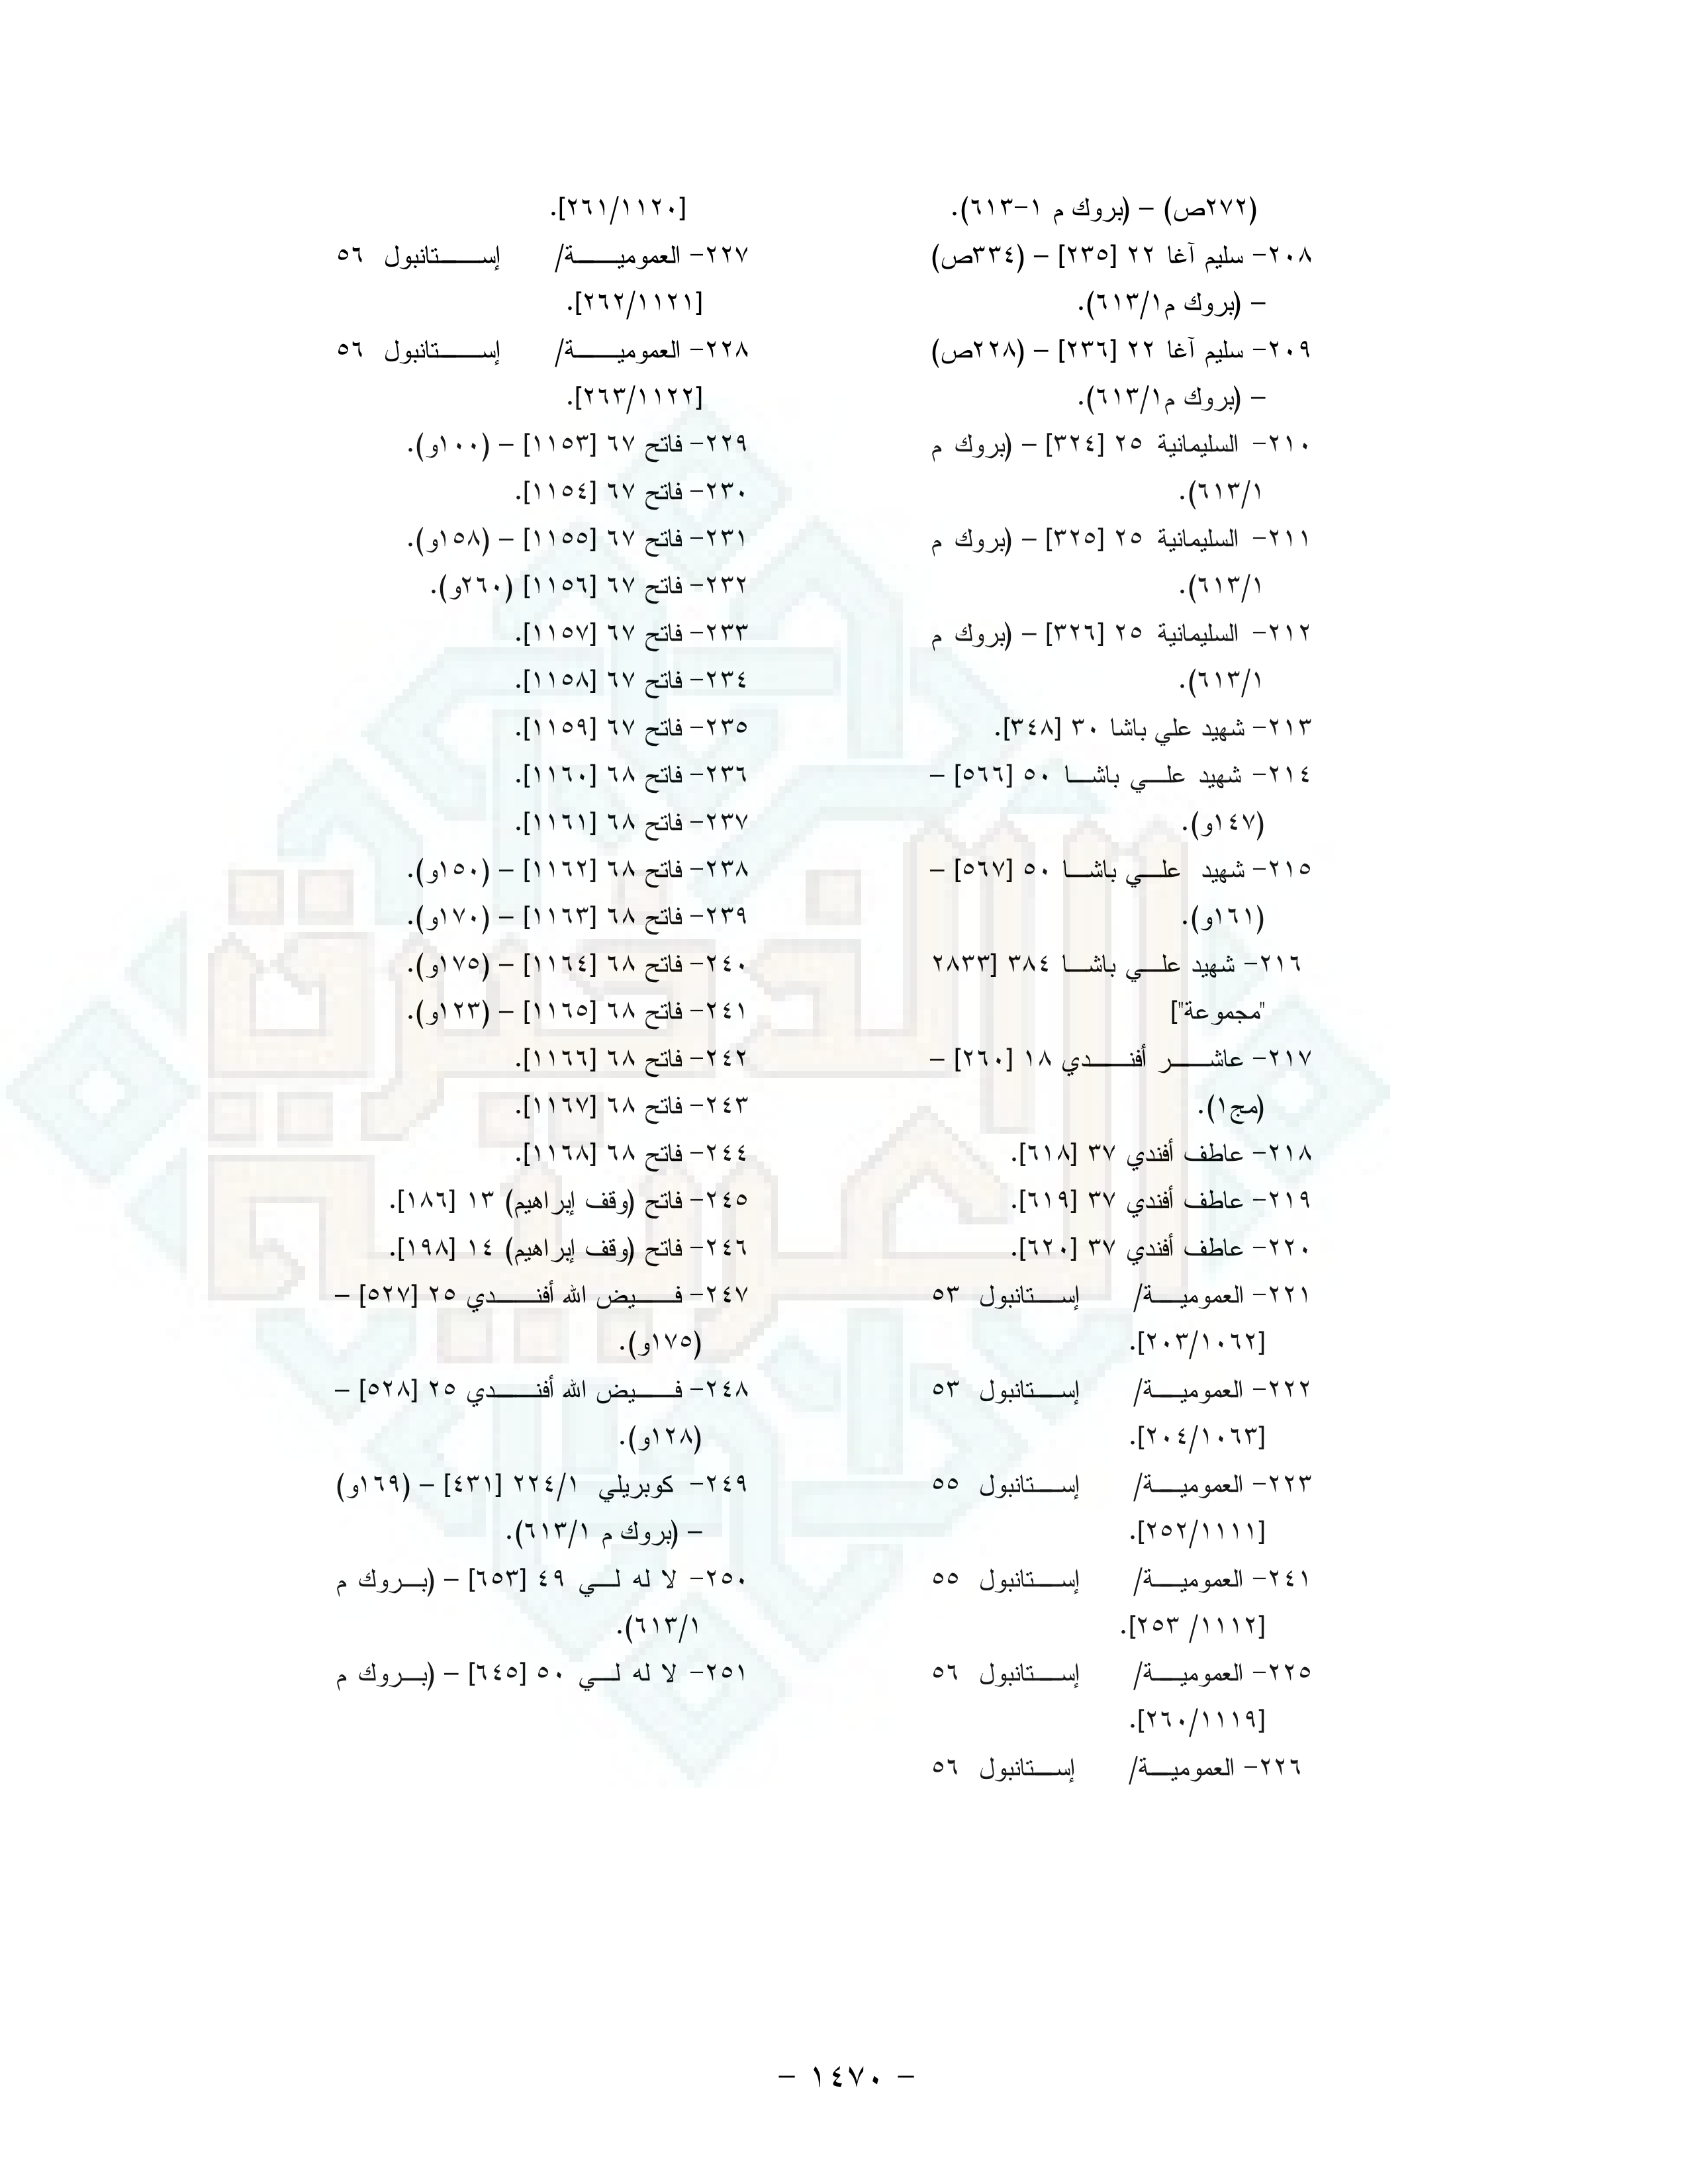 (٢٧٢ص) – (بروك م ١-٦١٣).
٢٠٨- سليم آغا ٢٢ [٢٣٥] – (٣٣٤ص)
– (بروك م٦١٣/١).
٢٠٩- سليم آغا ٢٢ [٢٣٦] – (٢٢٨ص)
– (بروك م٦١٣/١).
٢١٠- السليمانية ٢٥ [٣٢٤] – (بروك م
٦١٣/١).
٢١١- السليمانية ٢٥ [٣٢٥] – (بروك م
٦١٣/١).
٢١٢- السليمانية ٢٥ [٣٢٦] – (بروك م
٦١٣/١).
٢١٣- شهيد علي باشا ٣٠ [٣٤٨].
٢١٤- شهيد علي باشا ٥٠ [٥٦٦] –
(١٤٧و).
٢١٥- شهيد علي باشا ٥٠ [٥٦٧] –
(١٦١و).
٢١٦- شهيد علي باشا ٣٨٤ [٢٨٣٣
"مجموعة"]
٢١٧- عاشر أفندي ١٨ [٢٦٠] –
(مج١).
٢١٨- عاطف أفندي ٣٧ [٦١٨].
٢١٩- عاطف أفندي ٣٧ [٦١٩].
٢٢٠- عاطف أفندي ٣٧ [٦٢٠].
٢٢١- العمومية/ إستانبول ٥٣
[٢٠٣/١٠٦٢].
٢٢٢- العمومية/ إستانبول ٥٣
[٢٠٤/١٠٦٣].
٢٢٣- العمومية/ إستانبول ٥٥
[٢٥٢/١١١١].
٢٤١- العمومية/ إستانبول ٥٥
[١١١٢/ ٢٥٣].
٢٢٥- العمومية/ إستانبول ٥٦
[٢٦٠/١١١٩].
٢٢٦- العمومية/ إستانبول ٥٦
[٢٦١/١١٢٠].
٢٢٧- العمومية/ إستانبول ٥٦
[٢٦٢/١١٢١].
٢٢٨- العمومية/ إستانبول ٥٦
[٢٦٣/١١٢٢].
٢٢٩- فاتح ٦٧ [١١٥٣] – (١٠٠و).
٢٣٠- فاتح ٦٧ [١١٥٤].
٢٣١- فاتح ٦٧ [١١٥٥] – (١٥٨و).
٢٣٢- فاتح ٦٧ [١١٥٦] (٢٦٠و).
٢٣٣- فاتح ٦٧ [١١٥٧].
٢٣٤- فاتح ٦٧ [١١٥٨].
٢٣٥- فاتح ٦٧ [١١٥٩].
٢٣٦- فاتح ٦٨ [١١٦٠].
٢٣٧- فاتح ٦٨ [١١٦١].
٢٣٨- فاتح ٦٨ [١١٦٢] – (١٥٠و).
٢٣٩- فاتح ٦٨ [١١٦٣] – (١٧٠و).
٢٤٠- فاتح ٦٨ [١١٦٤] – (١٧٥و).
٢٤١- فاتح ٦٨ [١١٦٥] – (١٢٣و).
٢٤٢- فاتح ٦٨ [١١٦٦].
٢٤٣- فاتح ٦٨ [١١٦٧].
٢٤٤- فاتح ٦٨ [١١٦٨].
٢٤٥- فاتح (وقف إبراهيم) ١٣ [١٨٦].
٢٤٦- فاتح (وقف إبراهيم) ١٤ [١٩٨].
٢٤٧- فيض الله أفندي ٢٥ [٥٢٧] –
(١٧٥و).
٢٤٨- فيض الله أفندي ٢٥ [٥٢٨] –
(١٢٨و).
٢٤٩- كوبريلي ٢٢٤/١ [٤٣١] – (١٦٩و)
– (بروك م ٦١٣/١).
٢٥٠- لا له لي ٤٩ [٦٥٣] – (بروك م
٦١٣/١).
٢٥١- لا له لي ٥٠ [٦٤٥] – (بروك م
الذخيرة
العربية
– ١٤٧٠ –